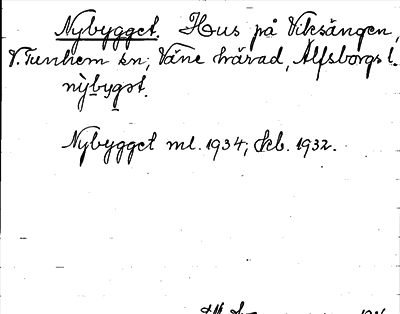 Nybygget. Hus på Viksängen,
V. Tunhem sn, Väne härad, Älfsborgs l.
nỳbygst.
Nybygget ml. 1934; kb. 1932.